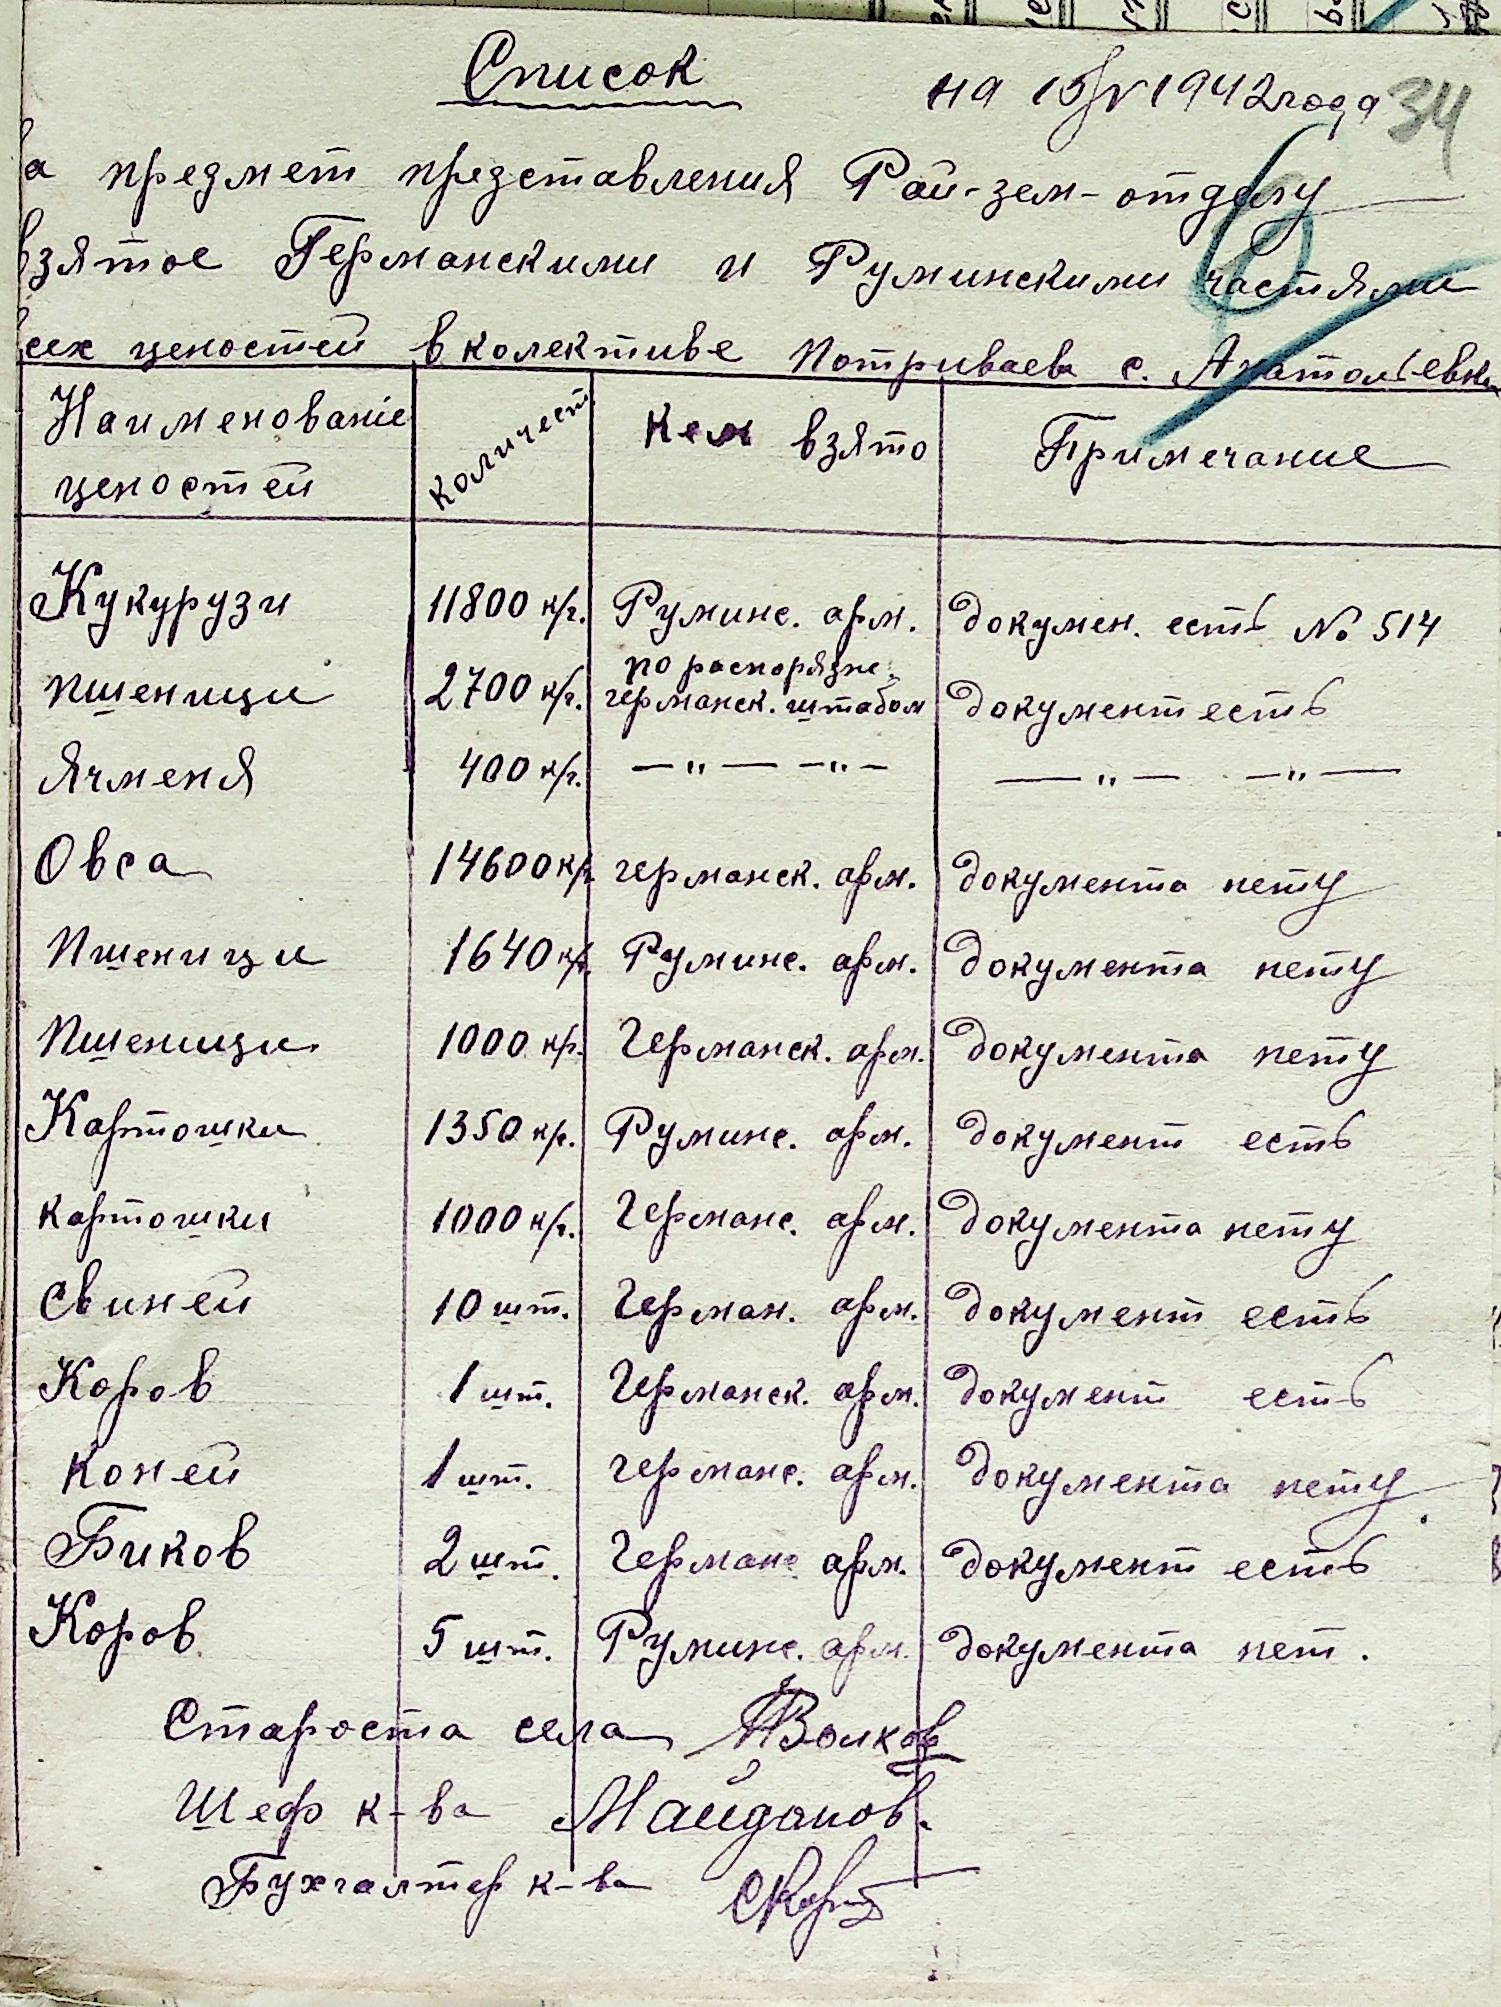 Список на 15/V 1942 года 34
а предмет представления Рай-зем-отделу
взятое Германскими и Руминскими частями
всех ценостей в колективе Потриваева с. Анатольевки
Наименованіе ценостей Количест Кем взято Примечание
Кукурузи 11800 к/г. Руминс. арм. докумен. есть № 514
пшеници 2700 к/г. по распоряже. германск. штабом документ есть
Ячменя 400 к/г. —„— —„— —„— —„—
Овса 14600 к/г. германск. арм. документа нету
Пшеници 1640 к/г. Руминс. арм. документа нету
Пшеници 1000 к/г. Германск. арм. документа нету
Картошки 1350 к/г. Руминс. арм. документ есть
картошки 1000 к/г. Германс. арм. документа нету
Свиней 10 шт. Герман. арм. документ есть
Коров 1 шт. Германск. арм. документ есть
коней 1 шт. германс. арм. документа нету
Биков 2 шт. Германс. арм. документ есть
Коров 5 шт. Руминс. арм. документа нет.
Староста села Волков
Шеф к-ва Майданов.
Бухгалтер к-ва